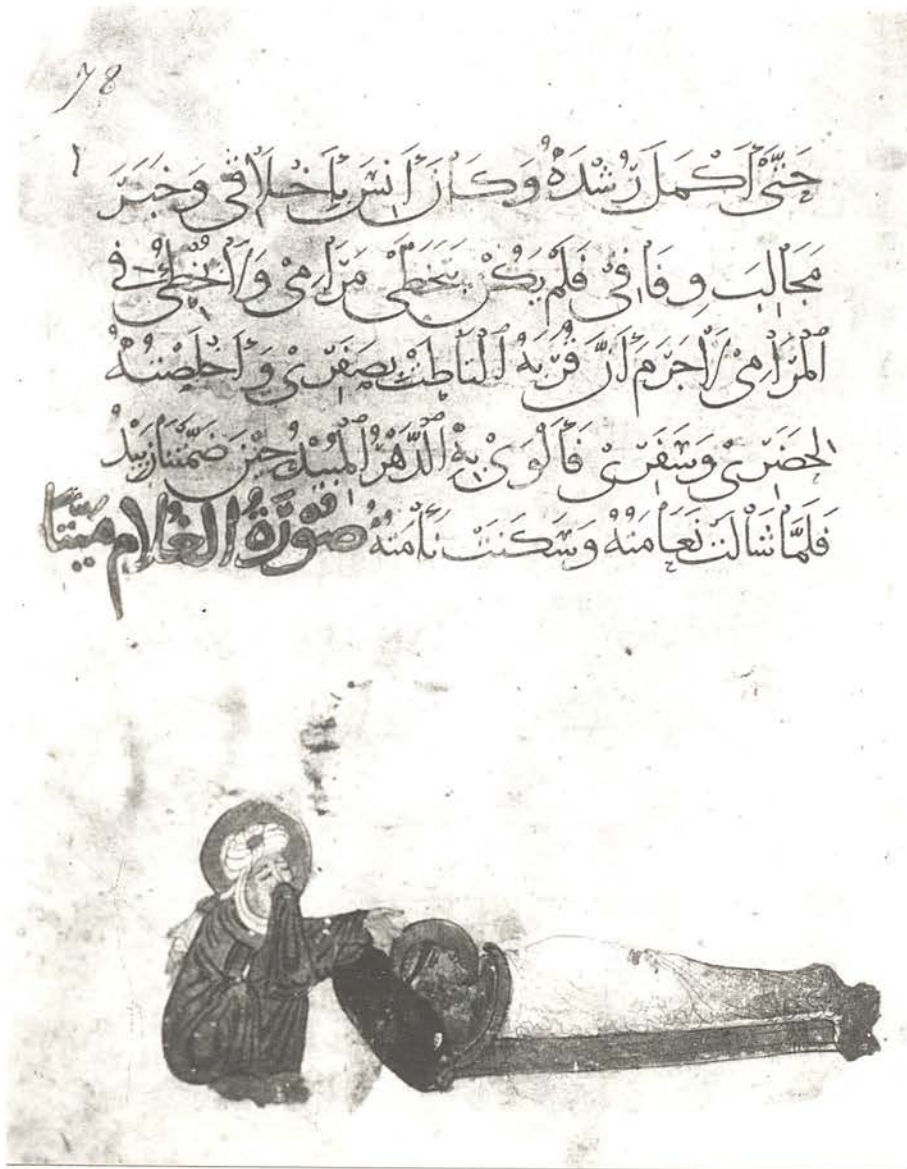 78
حَتَّى أَكْمَلَ رُشْدَهُ وَكَانَ أَنِسَ بِأَخْلَاقِي وَخَبَرَ
مَجَالِبَ وِفَاقِي فَلَمْ يَكُنْ يَتَخَطَّى مَرَامِي وَلَا يُخْطِئُ فِي
الْمَرَامِي لَا جَرَمَ أَنَّ قُرَبَهُ الْتَاطَتْ بِصَفَرِي وَأَخْلَصْتُهُ
لِحَضَرِي وَسَفَرِي فَأَلْوَى بِهِ الدَّهْرُ الْمُبِيدُ حِينَ ضَمَّتْنَا زَبِيدُ
فَلَمَّا شَالَتْ نَعَامَتُهُ وَسَكَنَتْ نَأْمَتُهُ صُورَةُ الغُلَامِ مَيِّتًا